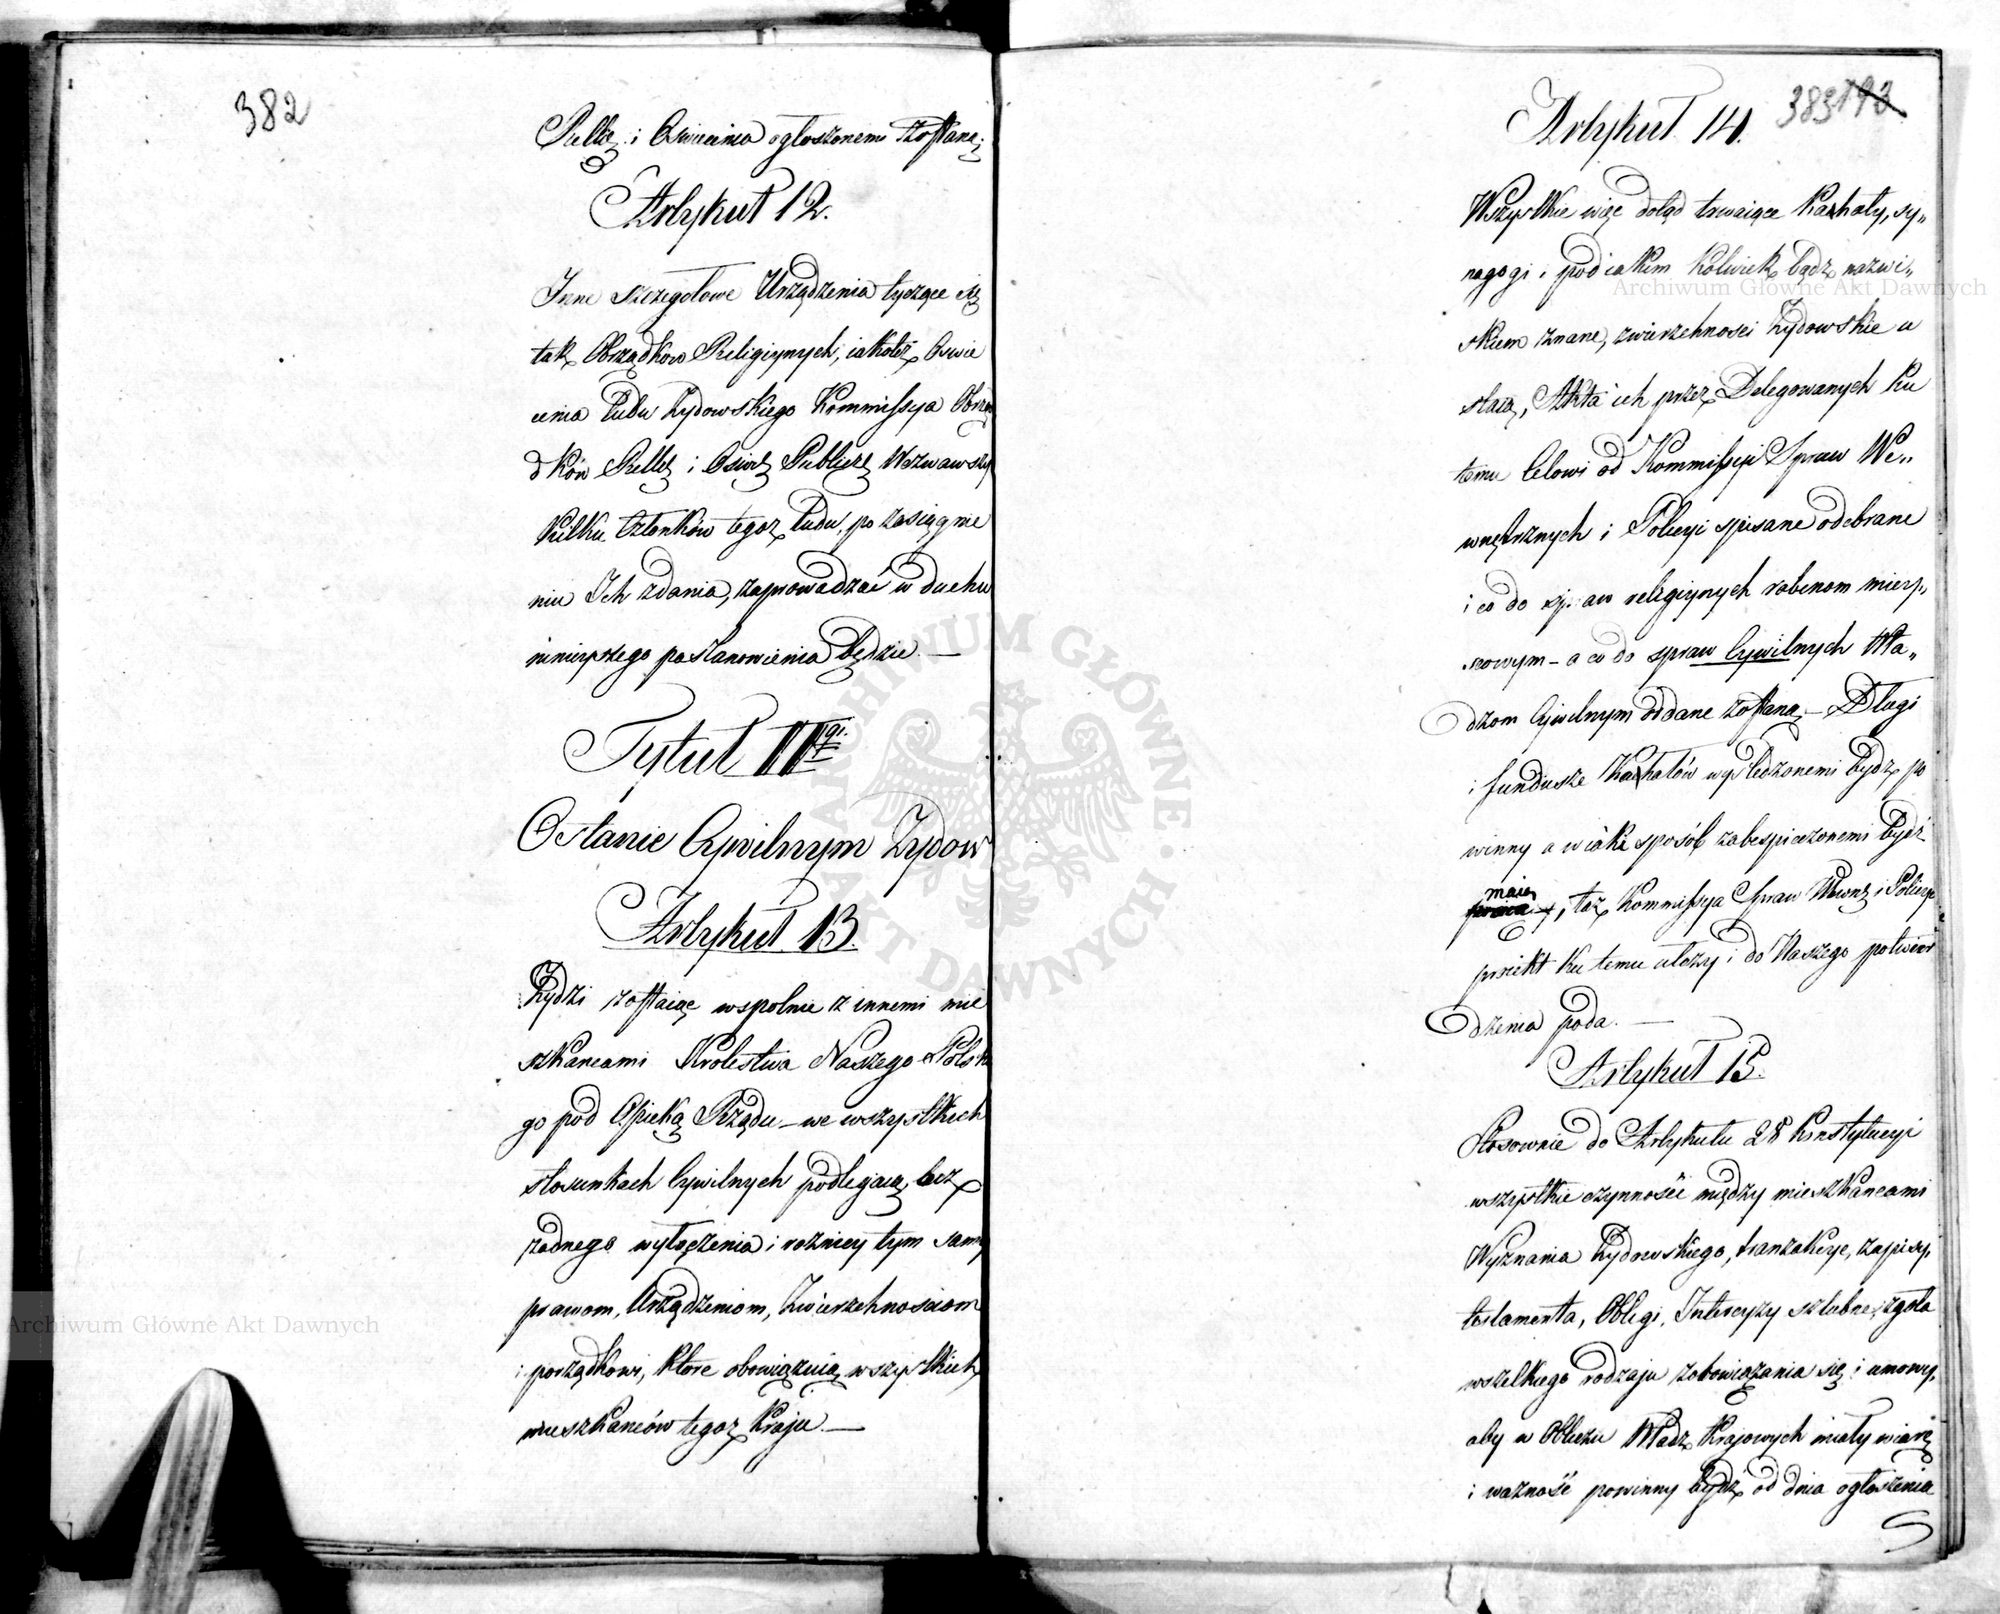 382
Rellg. i Oświecenia ogłoszonemi zostaną.
Artykuł 12.
Inne szczegołowe Urządzenia tyczące się
tak Obrządkow Religiynych, iakoteż Oswie
cenia Ludu Żydowskiego Kommissya Obrzą
dków Rellg. i Oświec. Publiczn. Wezwawszy
Kilku Członków tegoz Ludu, po zasiągnie
niu Ich zdania, zaprowadzać w duchu
ninieyszego postanowienia będzie. —
Tytuł II gi.
O stanie Cywilnym Żydow
Artykuł 13.
Żydzi zostaiąc wspolnie z innemi mie
szkancami Krolestwa Naszego Polskie
go pod Opieką Rządu – we wszystkich
stosunkach Cywilnych podlegaią bez
żadnego wyłączenia i roznicy tym samym
prawom, Urządzeniom, Zwierzchnosciom
i porządkowi, ktore obowiązuią wszystkich
mieszkanców tegoz Kraju. —
383 193
Artykuł 14.
Wszystkie więc dotąd trwaiące Kahały, sy„
nagogi i pod iakim kolwiek bądz nazwi„
skiem znane, zwierzchnosci Żydowskie u
staią, Akta ich przez Delegowanych ku
temu Celowi od Kommissyi Spraw We„
wnętrznych i Policyi spisane odebrane
i co do spraw religiynych rabinom mieysc
scowym – a co do spraw Cywilnych Wła„
dzom Cywilnym oddane zostaną. – Długi
i fundusze Kahałów wysledzonemi bydz po
winny a w iaki sposób zabespieczonemi bydź
maią, taż Kommissya Spraw Wewnz i Policyi
proiekt ku temu ułoży i do Naszego potwier
dzenia poda. —
Artykuł 15.
Stosownie do Artykułu 28 Konstytucyi
wszystkie czynności między mieszkancami
Wyznania Żydowskiego, tranzakcye, zapisy,
testamenta, Obligi, Intercyzy szlubne, zgoła
wszelkiego rodzaju zobowiązania się i umowy,
aby w Obliczu Władz Krajowych miały wiarę
i ważność powinny bydź od dnia ogłoszenia
Archiwum Główne Akt Dawnych
Archiwum Główne Akt Dawnych
ARCHIWUM GŁÓWNE AKT DAWNYCH